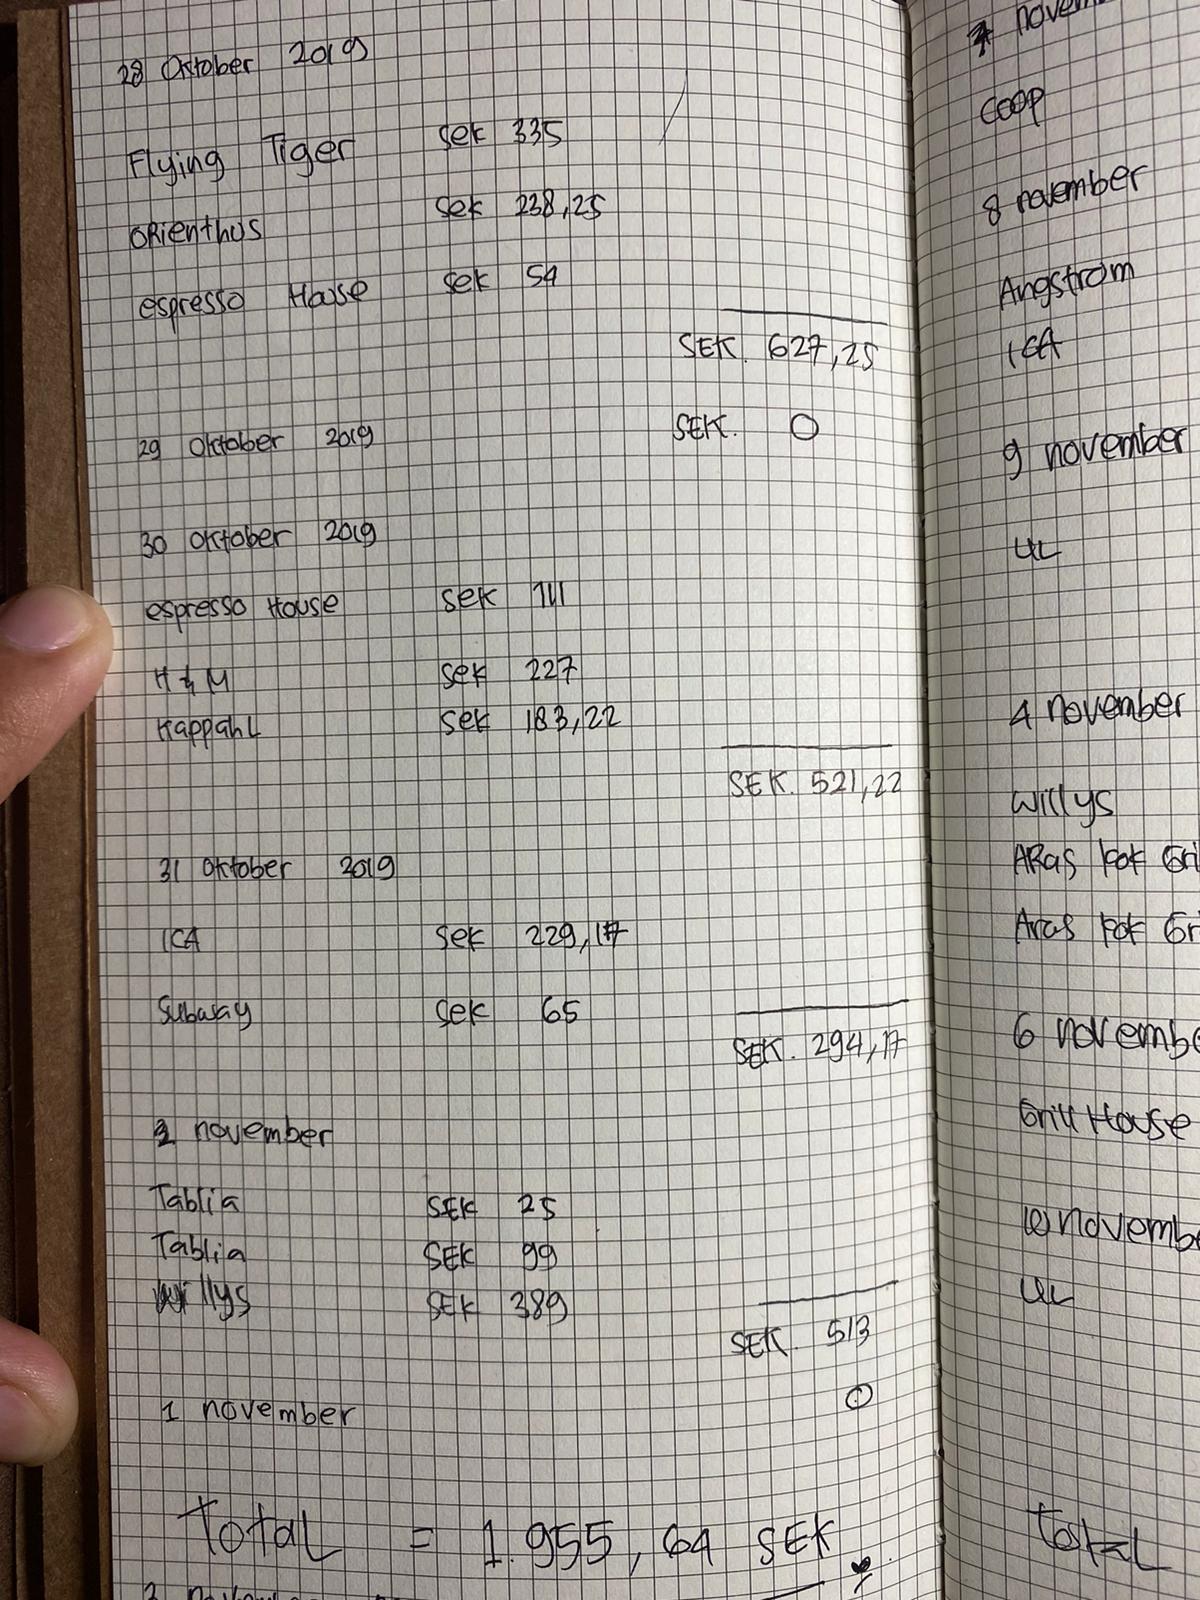 28 Oktober 2019
Flying Tiger sek 335
ORienthus sek 238,25
espresso House sek 54
SEK. 627,25
29 Oktober 2019 SEK. 0
30 Oktober 2019
espresso House sek 111
H & M sek 227
Kappahl sek 183,22
SEK. 521,22
31 Oktober 2019
ICA sek 229,17
Subway sek 65
SEK. 294,17
2 november
Tablia SEK 25
Tablia SEK 99
Willys SEK 389
SEK. 513
1 november 0
Total = 1.955,64 SEK
coop
8 november
Angstrom
ICA
9 november
UL
4 november
Willys
ARas kok Gri
Aras kok Gr
6 novembe
Grill House
10 novembe
UL
Total